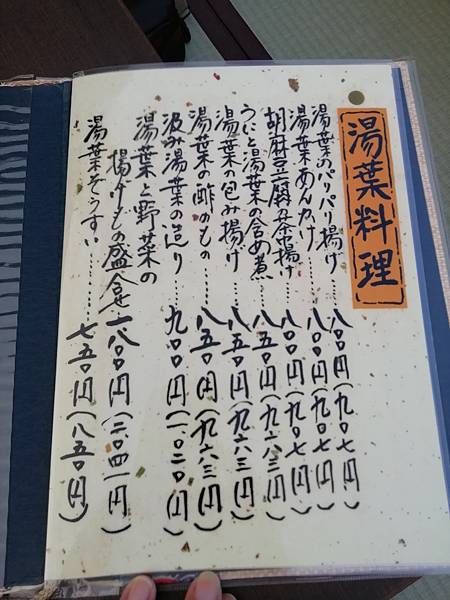 湯葉料理
湯葉のパリパリ揚げ……八〇〇円(九〇七円)
湯葉あんかけ……八〇〇円(九〇七円)
胡麻豆腐茶揚げ……八〇〇円(九〇七円)
うにと湯葉の含め煮……八五〇円(九六三円)
湯葉の包み揚げ……八五〇円(九六三円)
湯葉の酢のもの……八五〇円(九六三円)
汲み湯葉の造り……九〇〇円(一〇二〇円)
湯葉と野菜の
揚げもの盛合せ…一八〇〇円(二〇四一円)
湯葉ぞうすい………七五〇円(八五〇円)